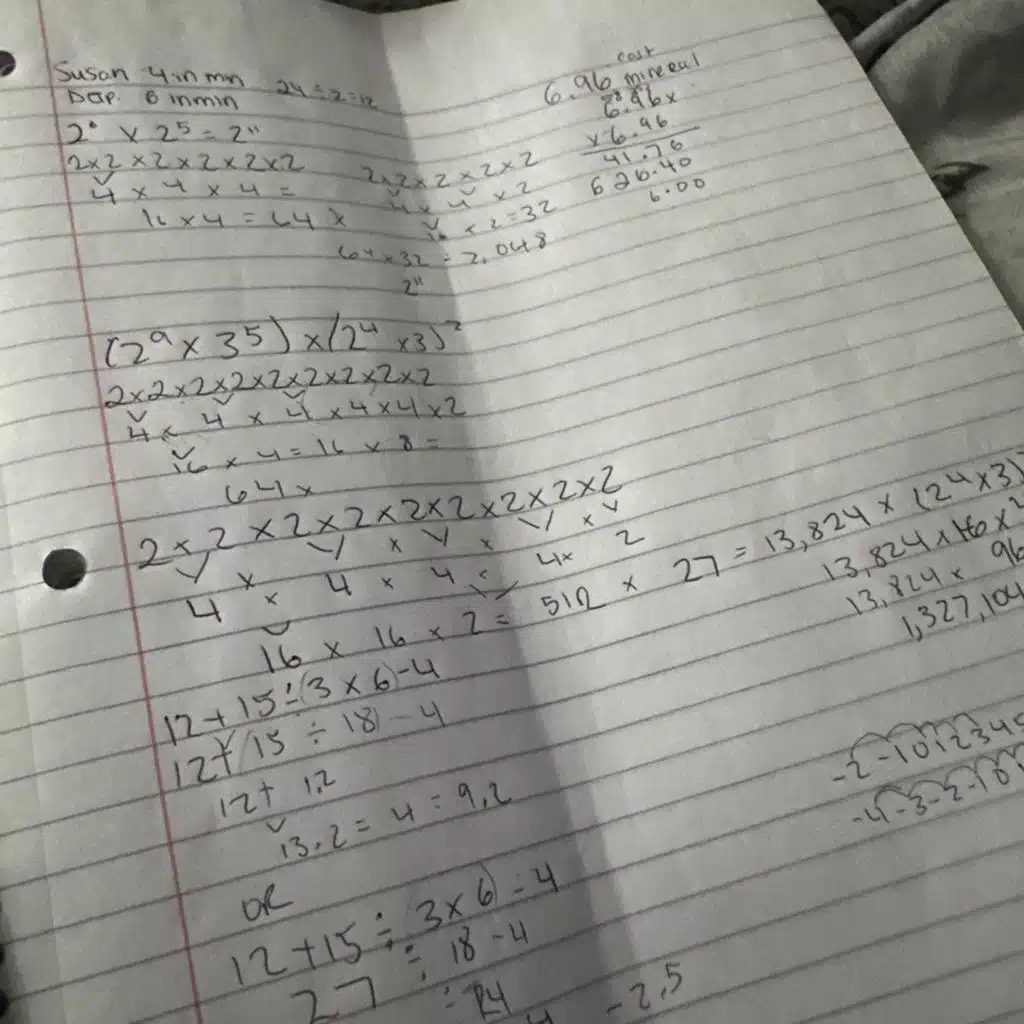 Susan 4 in min 24 ÷ 2 = 12
6 in min
2⁶ × 2⁵ = 2¹¹
2×2 ×2×2×2×2
4 × 4 × 4 =
16 × 4 = 64 ×
2×2×2×2×2
4 × 4 × 2
16 × 2 = 32
64×32 = 2,048
2¹¹
cost
6.96 mineral
6.96x
× 6.96
41.76
626.40
6.00
(2⁹ × 3⁵) × (2⁴ ×3)²
2×2×2×2×2×2×2×2×2
4 × 4 × 4 ×4×4×2
16 × 4 = 16 × 8 =
64×
2×2×2×2×2×2×2×2×2
4 × 4 × 4 × 4× 2
16 × 16 × 2 = 512 × 27 = 13,824 × (2⁴×3)²
13,824×16×
13,824 × 96
1,327,104
12+15÷(3×6)-4
12+(15 ÷ 18) - 4
12+ 1.2
13.2 = 4 = 9.2
-2-1012345
-4-3-2-10
OR
12+15 ÷ (3×6) - 4
27 ÷ 18 - 4
÷ 14
- 2.5